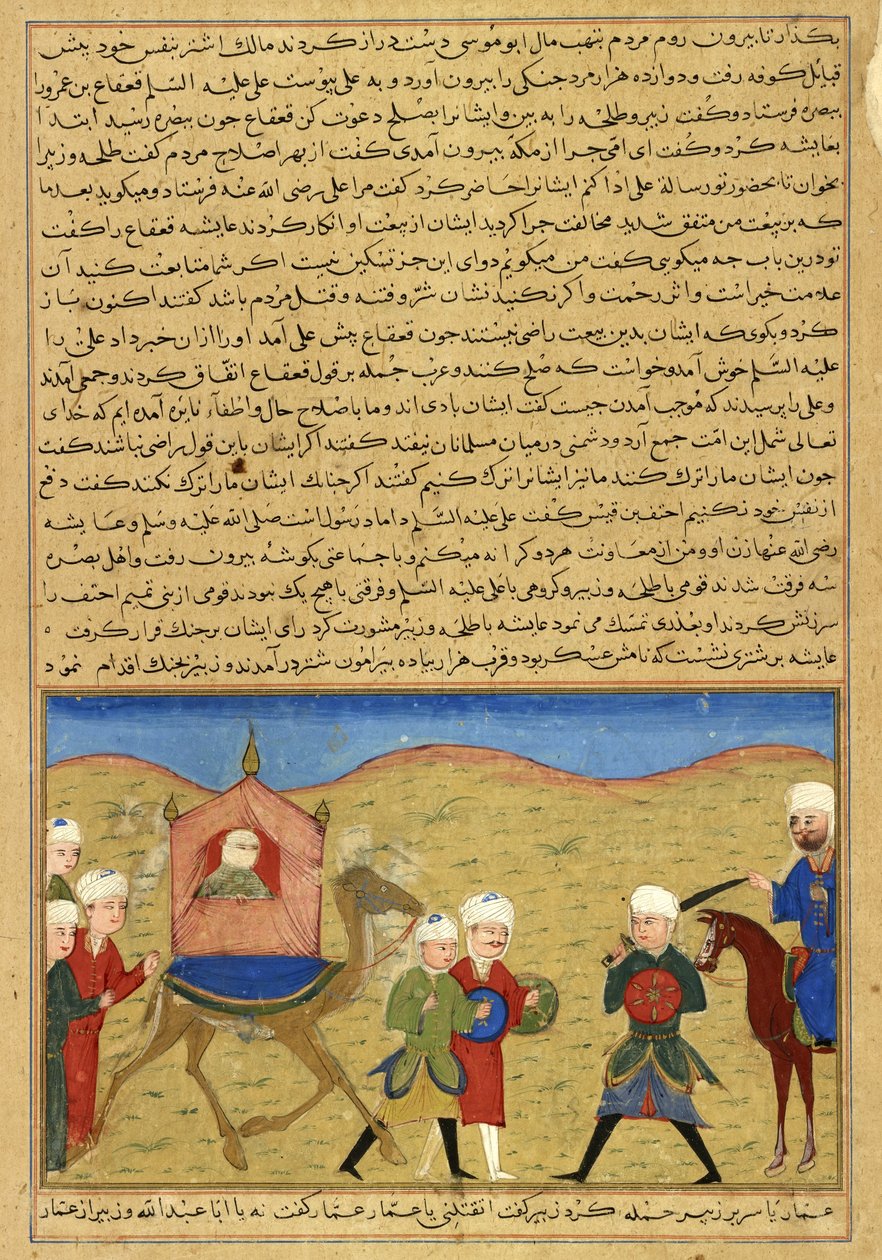 بکذار تا بیرون روم مردم بنهب مال ابوموسی دست دراز کردند مالك اشتر بنفس خود پیش
قبایل کوفه رفت و دوازده هزار مرد جنکی را بیرون آورد و به علی پیوست علی علیه السّلم قعقاع بن عمرو را
ببصره فرستاد و کفت زبیر و طلحه را به بین و ایشانرا بصلح دعوت کن قعقاع جون ببصره رسید ابتدا
بعایشه کرد و کفت ای امّی جرا از مکّه بیرون آمدی کفت از بهر اصلاح مردم کفت طلحه و زبیر را
بخوان تا بحضور تو رسالة علی ادا کنم ایشانرا حاضر کرد کفت مرا علی رضی الله عنه فرستاد و میکوید بعد ما
که بر بیعت من متفق شدید مخالفت جرا کردید ایشان از بیعت او انکار کردند عایشه قعقاع را کفت
تو درین باب جه میکویی کفت من میکویم دوای این جز تسکین نیست اکر شما متابعت کنید آن
علامت خیر است و اثر رحمت و اکر نکنید نشان شرّ و فتنه و قتل مردم باشد کفتند اکنون باز
کرد و بکوی که ایشان بدین بیعت راضی نیستند جون قعقاع پیش علی آمد او را ازان خبر داد علی را
علیه السّلم خوش آمد و خواست که صلح کنند و عرب جمله بر قول قعقاع اتفّاق کردند و جمعی آمدند
و علی را پرسیدند که موجب آمدن جیست کفت ایشان بادی اند و ما باصلاح حال و اطفآء نایره آمده ایم که خدای
تعالی شمل این امّت جمع آرد و دشمنی درمیان مسلمانان نیفتد کفتند اکر ایشان باین قول راضی نباشند کفت
جون ایشان ما را ترك کنند ما نیز ایشانرا ترك کنیم کفتند اکر جنانك ایشان ما را ترك نکنند کفت دفع
از نفس خود بکنیم احنف بن قیس کفت علی علیه السّلم داماد رسول است صلی الله علیه وسلم و عایشه
رضی الله عنها زن او و من از معاونت هر دو کرانه میکنم و با جماعتی بکوشهٔ بیرون رفت و اهل بصره
سه فرقت شدند قومی با طلحه و زبیر و کروهی با علی علیه السّلم و فرقتی با هیچ یك نبودند قومی از بنی تمیم احنف را
سرزنش کردند او بعذری تمسّك می نمود عایشه با طلحه و زبیر مشورت کرد رای ایشان بر جنك قرار کرفت
عایشه بر شتری نشست که نامش عسکر بود و قرب هزار پیاده پیرامون شتر درآمدند و زبیر بجنك اقدام نمود
عمّار یاسر بر زبیر حمله کرد زبیر کفت اتقتلنی یا عمّار عمّار کفت نه یا ابا عبد الله و زبیر از عمّار